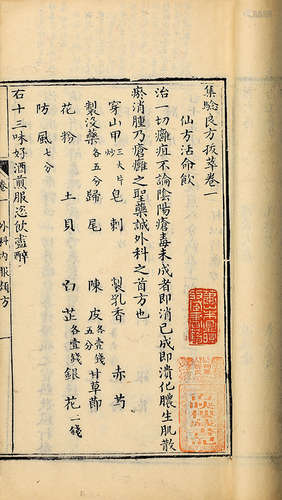 集驗良方拔萃卷一
仙方活命飲
治一切癰疽不論陰陽瘡毒未成者即消已成即潰化膿生肌散
瘀消腫乃瘡癰之聖藥誠外科之首方也
穿山甲 炒 三大片 皂刺 製乳香 赤芍
製沒藥 各五分 歸尾 陳皮 各壹錢五分 甘草節
花粉 土貝 白芷 各壹錢 銀花 二錢
防風 七分
右十三味好酒煎服恣飲盡醉
卷一 外科內服類方